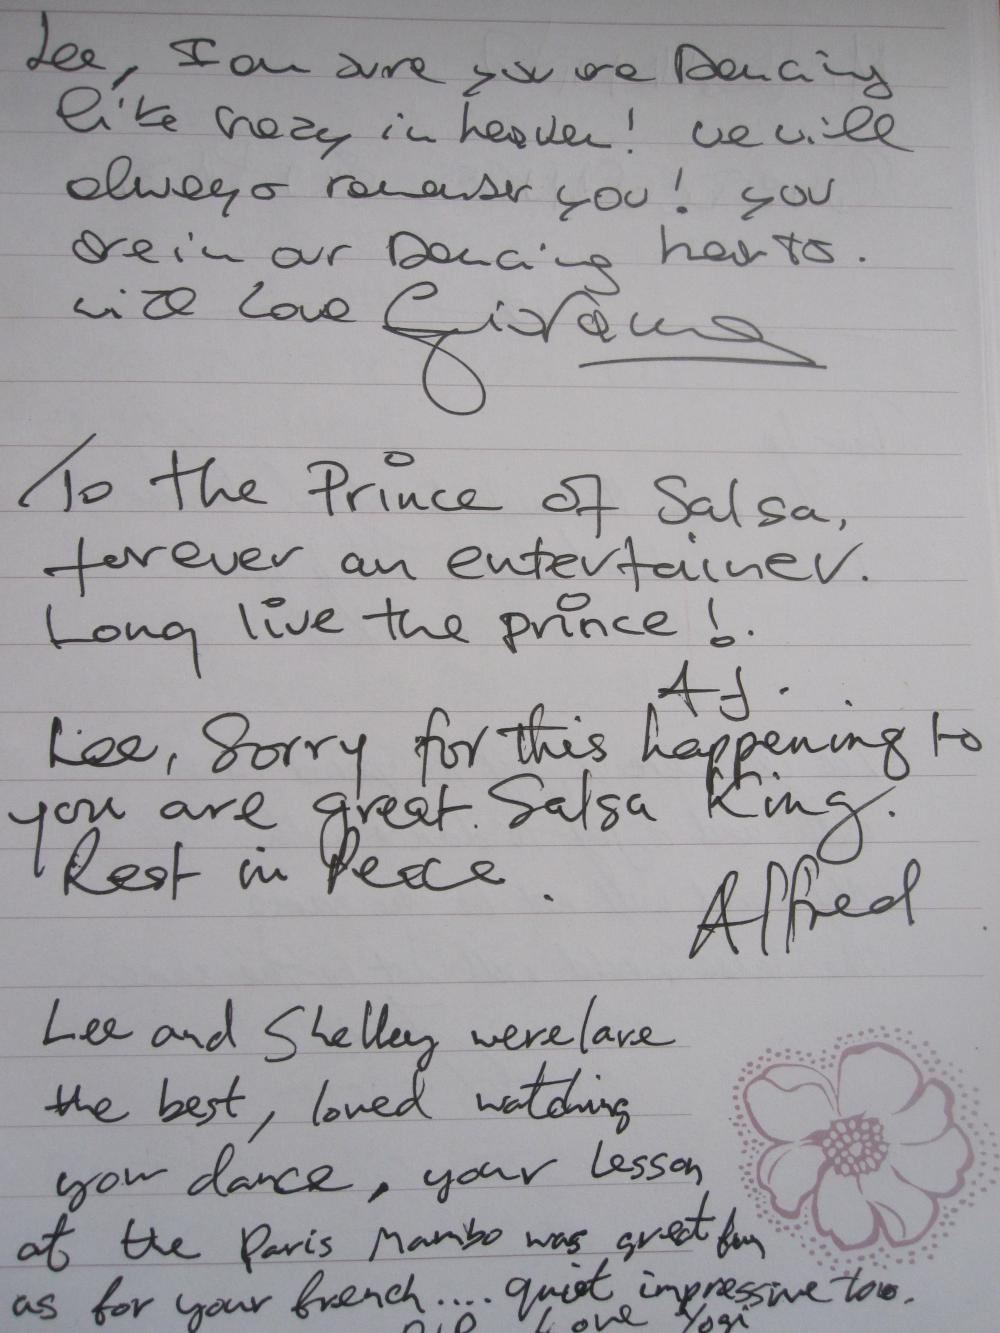 Lee, I am sure you are Dancing
like crazy in heaven! we will
always remember you! you
are in our Dancing hearts.
with Love Giovanna
To the Prince of Salsa,
forever an entertainer.
Long live the prince!.
AJ.
Lee, Sorry for this happening to
you are great. Salsa King.
Rest in Peace.
Alfred
Lee and Shelley were/are
the best, loved watching
your dance, your Lesson
at the Paris Mambo was great fun
as for your french.... quiet impressive too.
RIP Love Yogi